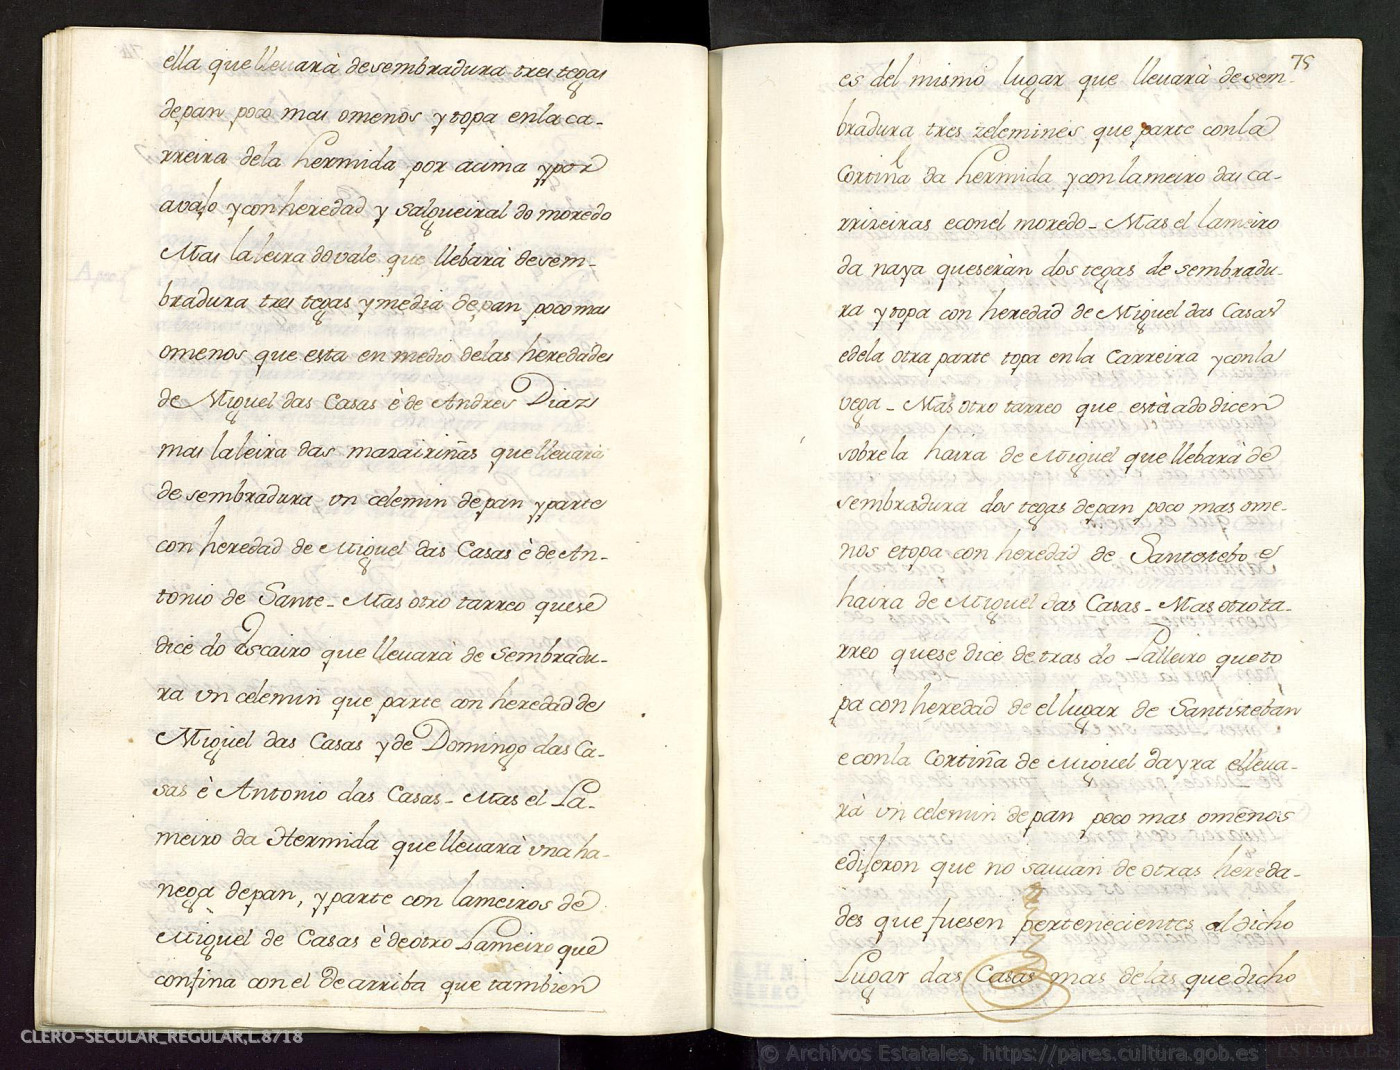 ella que lleuarà de sembradura tres tegas
de pan poco mas omenos y topa en la ca-
rreira dela hermida por acima y por
avajo y con heredad y salgueiral do moredo
Mas la leira do vale que llebarà de sem-
bradura tres tegas y media de pan poco mas
omenos que esta en medio delas heredades
de Miguel das Casas è de Andres Diaz
mas la leira das marairiñas que lleuarà
de sembradura vn celemin de pan y parte
con heredad de Miguel das Casas è de An-
tonio de Sante - Mas otro tarreo que se
dice do Escairo que lleuarà de sembradu-
ra vn celemin que parte con heredad de
Miguel das Casas y de Domingo das Ca-
sas è Antonio das Casas - Mas el La-
meiro da Hermida que lleuarà vna ha-
nega de pan, y parte con lameiros de
Miguel de Casas è de otro Lameiro que
confina con el de arriba que tambien
75
es del mismo lugar que lleuarà de sem-
bradura tres zelemines que parte con la
Cortiña da hermida y con lameiro das ca-
rrireiras e con el moredo - Mas el lameiro
da naya que seràn dos tegas de sembradu-
ra y topa con heredad de Miguel das Casas
e dela otra parte topa en la Carreira y con la
vega - Mas otro tarreo que està ado dicen
sobre la haira de Miguel que llebarà de
sembradura dos tegas de pan poco mas ome-
nos e topa con heredad de Santestebo e
haira de Miguel das Casas - Mas otro ta-
rreo que se dice de tras do Palleiro que to
pa con heredad de el lugar de Santisteban
e con la Cortiña de Miguel dayra e lleua-
rà vn celemin de pan poco mas omenos
e dijeron que no sauian de otras hereda-
des que fuesen pertenecientes al dicho
Lugar das Casas mas de las que dicho
CLERO-SECULAR_REGULAR,L.8718
© Archivos Estatales, https://pares.cultura.gob.es